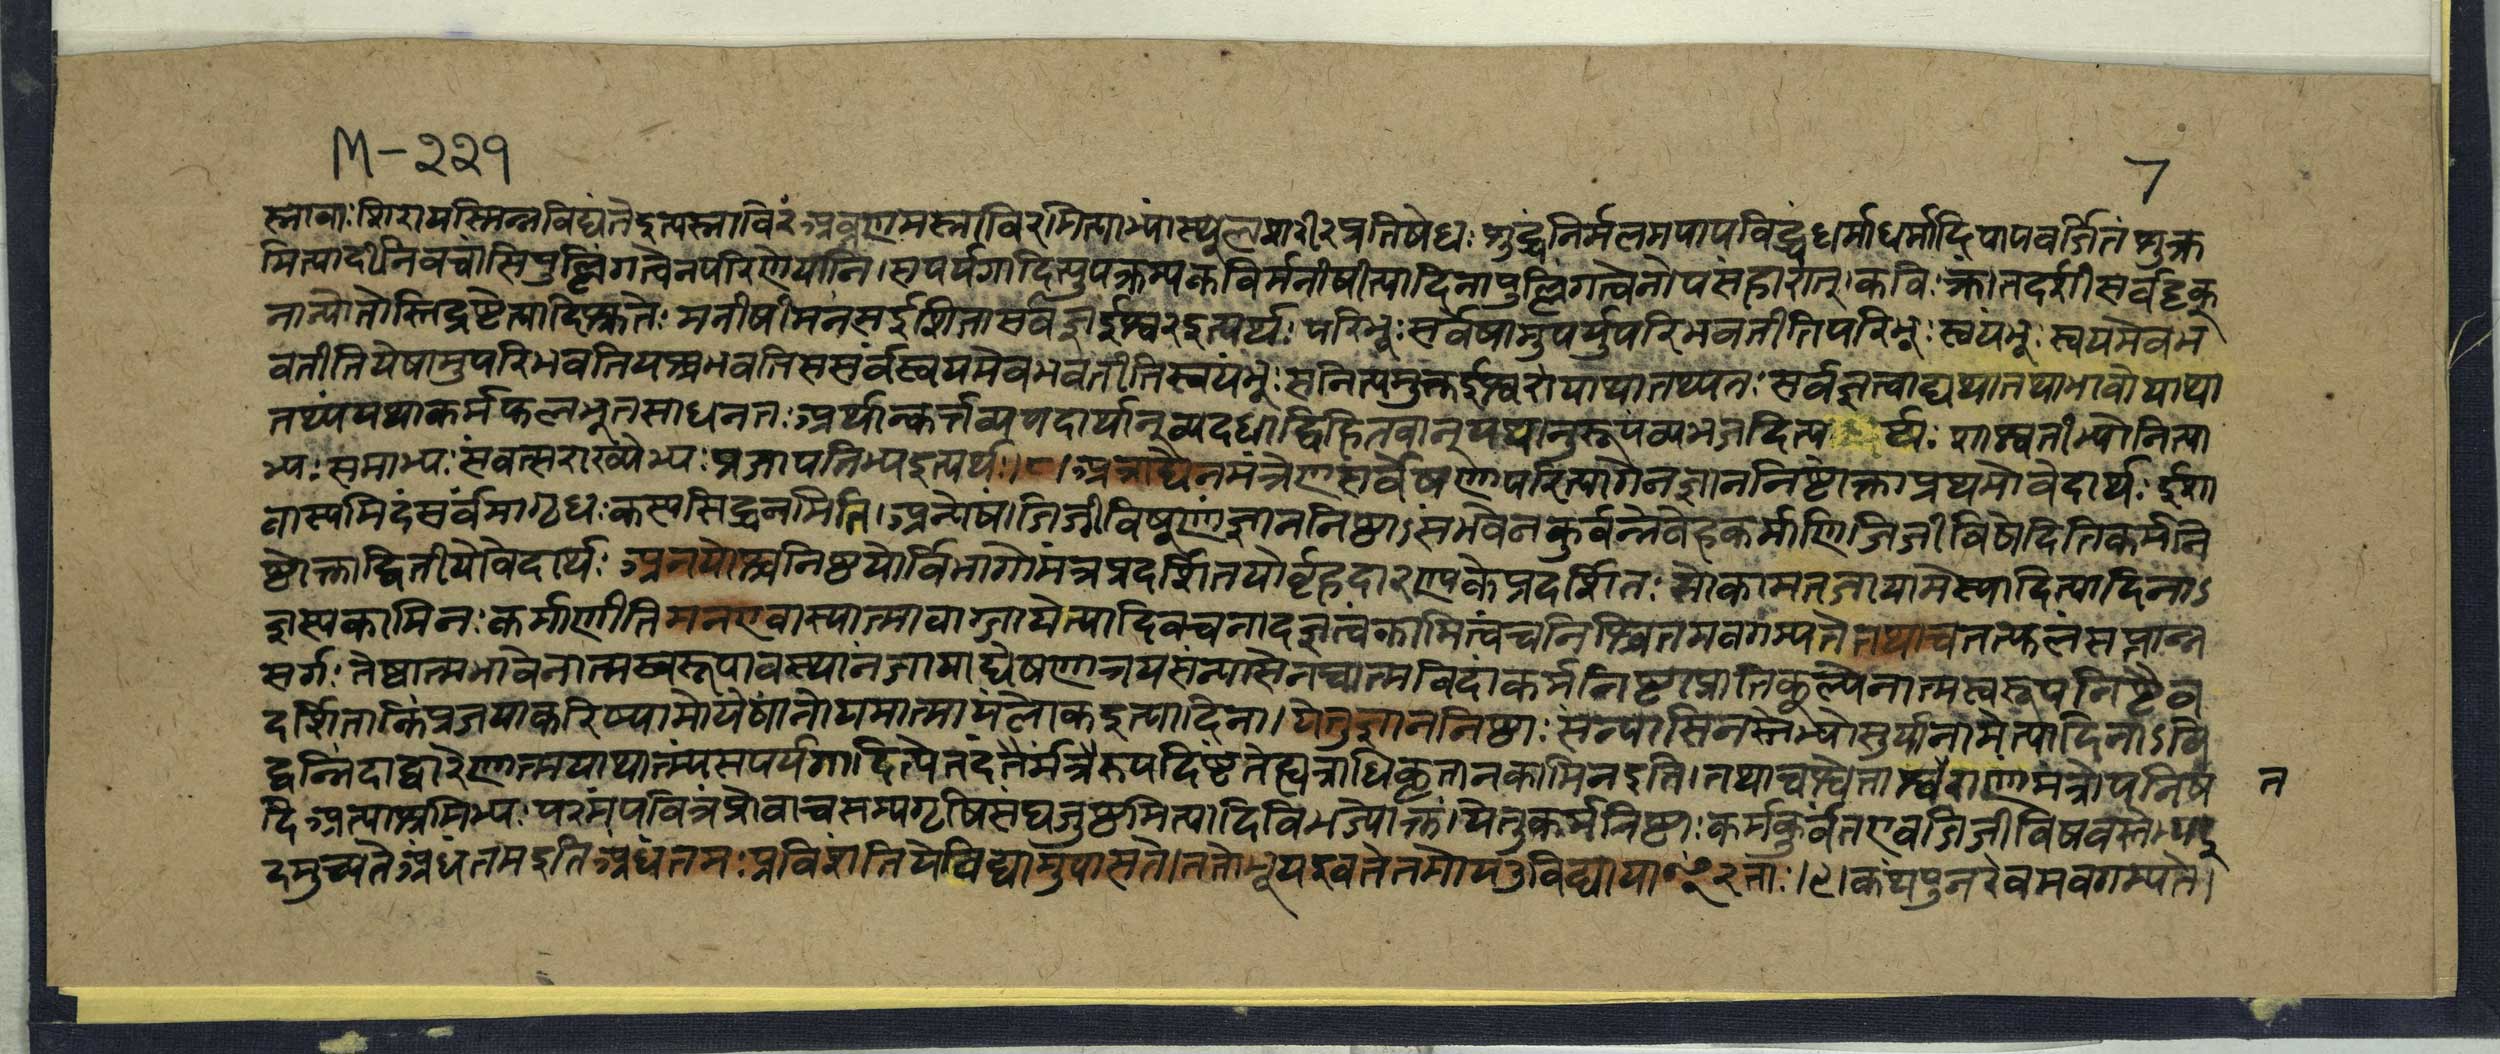 M-२२१
7
स्नावाः शिरा यस्मिन्न विद्यंतेइत्यस्नाविरं अव्रणमस्नाविरमित्याभ्यां स्थूलशरीरप्रतिषेधः शुद्धं निर्मलमपापविद्धं धर्माधर्मादिपापवर्जितं शुक्र
मित्यादीनि वचांसि पुल्लिंगत्वेन परिणेयानि। सपर्यगादित्युपक्रम्य कविर्मनीषीत्यादिना पुल्लिंगत्वेनोपसंहारात्। कविः क्रांतदर्शी सर्वदृक्
नान्योतोस्ति द्रष्टेत्यादिश्रुतेः मनीषी मनस ईशिता सर्वज्ञ ईश्वर इत्यर्थः परिभूः सर्वेषामुपर्युपरि भवतीति परिभूः स्वयंभूः स्वयमेव भ
वतीति येषामुपरि भवति यश्च भवति स सर्वः स्वयमेव भवतीति स्वयंभूः स नित्यमुक्त ईश्वरो याथातथ्यतः सर्वज्ञत्वाद्यथातथाभावो याथा
तथ्यं यथाकर्मफलभूतसाधनतः अर्थान्कर्त्तव्यपदार्थान् व्यदधाद्विहितवान् यथानुरूपं व्यभजदित्यर्थः शाश्वतीभ्यो नित्या
भ्यः समाभ्यः संवत्सराख्येभ्यः प्रजापतिभ्य इत्यर्थः।८। अत्राद्येन मंत्रेण सर्वेषणापरित्यागेन ज्ञाननिष्टोक्ता प्रथमो वेदार्थः ईशा
वास्यमिदं सर्वं मा गृधः कस्य सिद्धनमिति। अन्येषां जिजीविषूणां ज्ञाननिष्ठाऽसंभवेन कुर्वन्नेवेह कर्माणि जिजीविषेदिति कर्मनि
ष्ठोक्ता द्वितीयो वेदार्थः अनयोश्च निष्ठयोर्विभागो मंत्रप्रदर्शितयोर्बृहदारण्यके प्रदर्शितः सोकामत जाया मे स्यादित्यादिनाऽ
ज्ञस्य कामिनः कर्माणीति मन एवास्यात्मा वाग्जायेत्यादिवचनादज्ञत्वं कामित्वं च निश्चितमवगम्यते तथा च तत्फलं सप्तान्न
सर्गः तेष्वात्मभावेनात्मस्वरूपावस्थानं जायाद्येषणात्रयसंन्यासेन चात्मविदां कर्मनिष्टाप्रातिकूल्येनात्मस्वरूपनिष्टैव
दर्शिता किं प्रजया करिष्यामो येषां नोयमात्मायं लोक इत्यादिना। ये तु ज्ञाननिष्ठाः संन्यासिनस्तेभ्योसुर्यानामेत्यादिनाऽवि
द्वन्निंदाद्वारेणात्मयाथात्म्यं सपर्यगादित्येतदंतैर्मंत्रैरुपदिष्टं ते ह्यत्राधिकृता न कामिन इति। तथा च श्वेताश्वतराणां मंत्रोपनिष
त
दि अत्याश्रमिभ्यः परमं पवित्रं प्रोवाच सम्यगृषिसंघजुष्टमित्यादि विभज्योक्तं। ये तु कर्मनिष्ठाः कर्म कुर्वत एव जिजीविषवस्तेभ्य इ
दमुच्यते अंधंतम इति अंधंतमः प्रविशंति येविद्यामुपासते। ततो भूय इव ते तमो य उ विद्यायाꣳ रताः।९। कथं पुनरेवमवगम्यते।